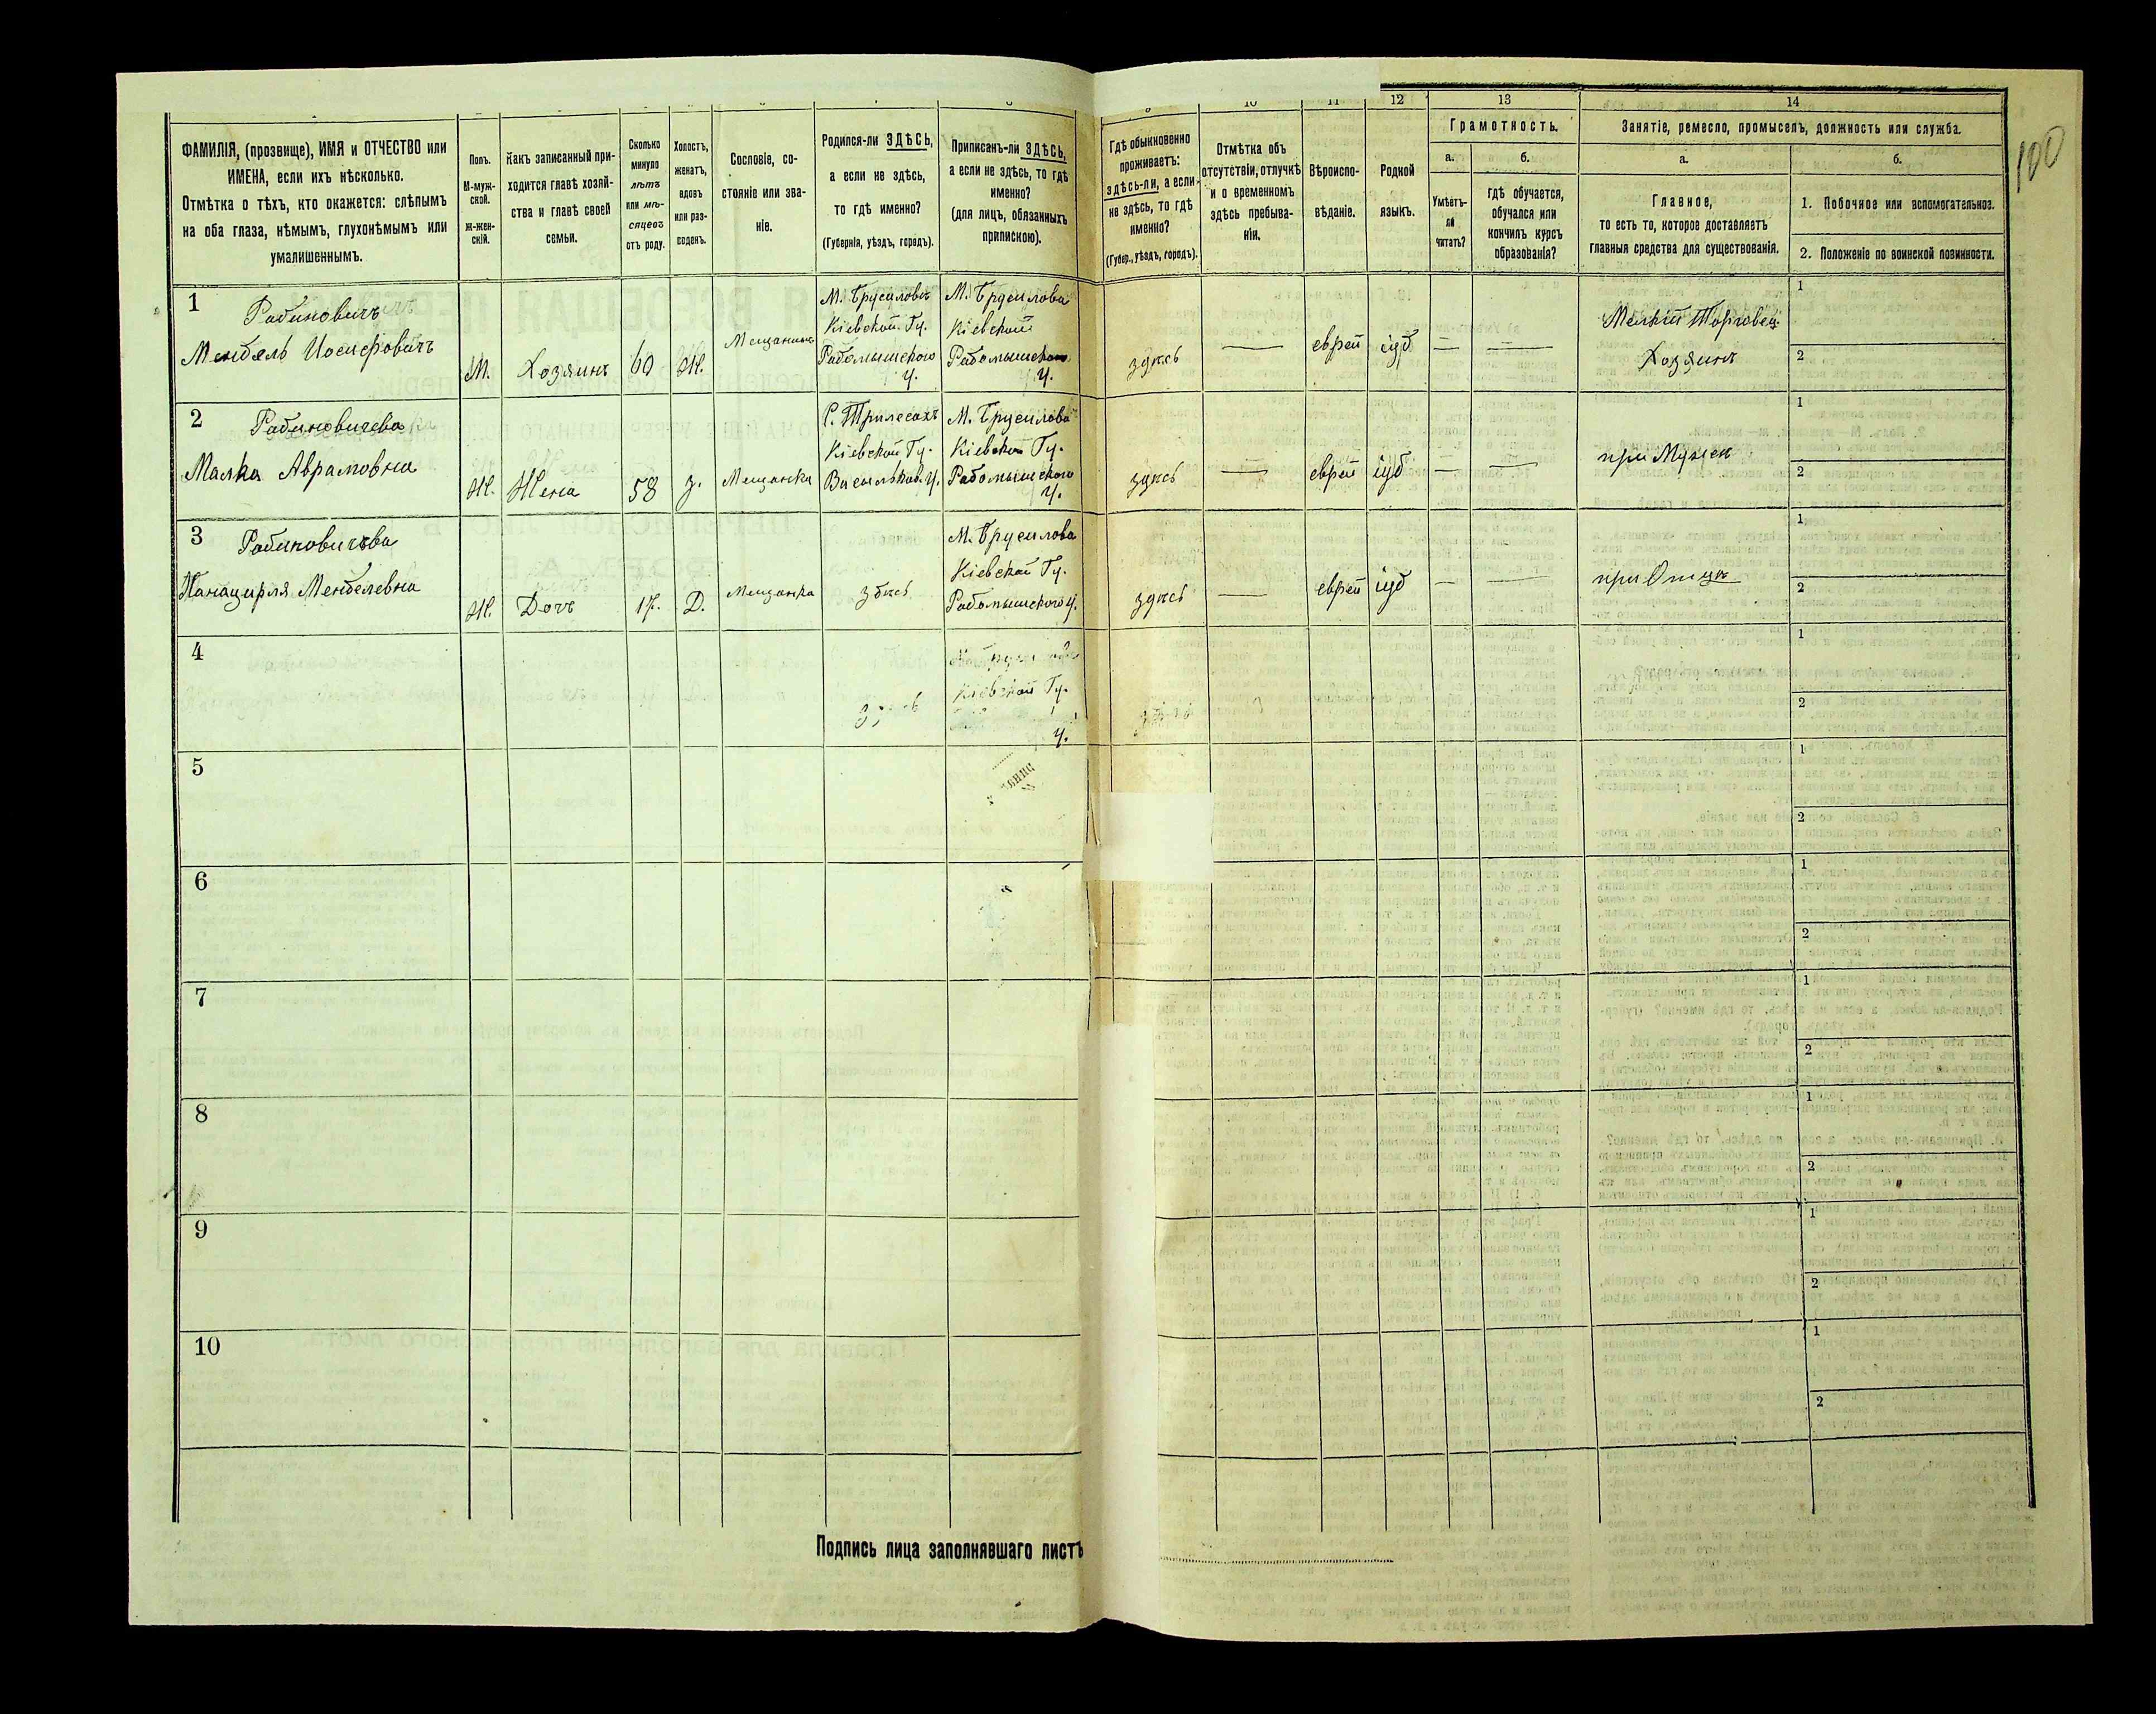 100
9 10 11 12 13 14
ФАМИЛІЯ, (прозвище), ИМЯ и ОТЧЕСТВО или
ИМЕНА, если ихъ нѣсколько.
Отмѣтка о тѣхъ, кто окажется: слѣпымъ
на оба глаза, нѣмымъ, глухонѣмымъ или
умалишеннымъ.
Полъ.
М-муж-
ской.
Ж-жен-
скій.
Какъ записанный при-
ходится главѣ хозяй-
ства и главѣ своей
семьи.
Сколько
минуло
лѣтъ
или мѣ-
сяцевъ
отъ роду.
Холостъ,
женатъ,
вдовъ
или раз-
веденъ.
Сословіе, со-
стояніе или зва-
ніе.
Родился-ли ЗДѢСЬ,
а если не здѣсь,
то гдѣ именно?
(Губернія, уѣздъ, городъ).
Приписанъ-ли ЗДѢСЬ,
а если не здѣсь, то гдѣ
именно?
(для лицъ, обязанныхъ
припискою).
Гдѣ обыкновенно
проживаетъ:
здѣсь-ли, а если
не здѣсь, то гдѣ
именно?
(Губер., уѣздъ, городъ).
Отмѣтка объ
отсутствіи, отлучкѣ
и о временномъ
здѣсь пребыва-
ніи.
Вѣроиспо-
вѣданіе.
Родной
языкъ.
Грамотность.
а.
Умѣетъ-
ли
читать?
б.
Гдѣ обучается,
обучался или
кончилъ курсъ
образованія?
Занятіе, ремесло, промыселъ, должность или служба.
а.
Главное,
то есть то, которое доставляетъ
главныя средства для существованія.
б.
1. Побочное или вспомогательное.
2. Положеніе по воинской повинности.
1
Рабиновичъ
Мендель Иосифовичъ
М.
Хозяинъ
60
Ж.
Мещанинъ
М. Брусиловъ
Кіевской Гу.
Радомышского
У.
М. Брусилова
Кіевской
Радомышского
У.
здѣсь
—
еврей
іуд
—
—
Мелкій Торговец
Хозяинъ
1
2
2
Рабиновичева
Малка Аврамовна
Ж.
Жена
58
З.
Мещанка
С. Трилесахъ
Кіевской Гу.
Васильков. У.
М. Брусилова
Кіевской Гу.
Радомышского
У.
здѣсь
—
еврей
іуд
—
—
при Мужѣ
1
2
3
Рабиновичева
Менделевна
Ж.
Дочъ
17.
Д.
Мещанка
здѣсь
М. Брусилова
Кіевской Гу.
Радомышского У.
здѣсь
—
еврей
іуд
—
—
при Отцѣ
1
2
4
Кіевской Гу.
У.
1
2
5
1
2
6
1
2
7
1
2
8
1
2
9
1
2
10
1
2
Подпись лица заполнявшаго листъ